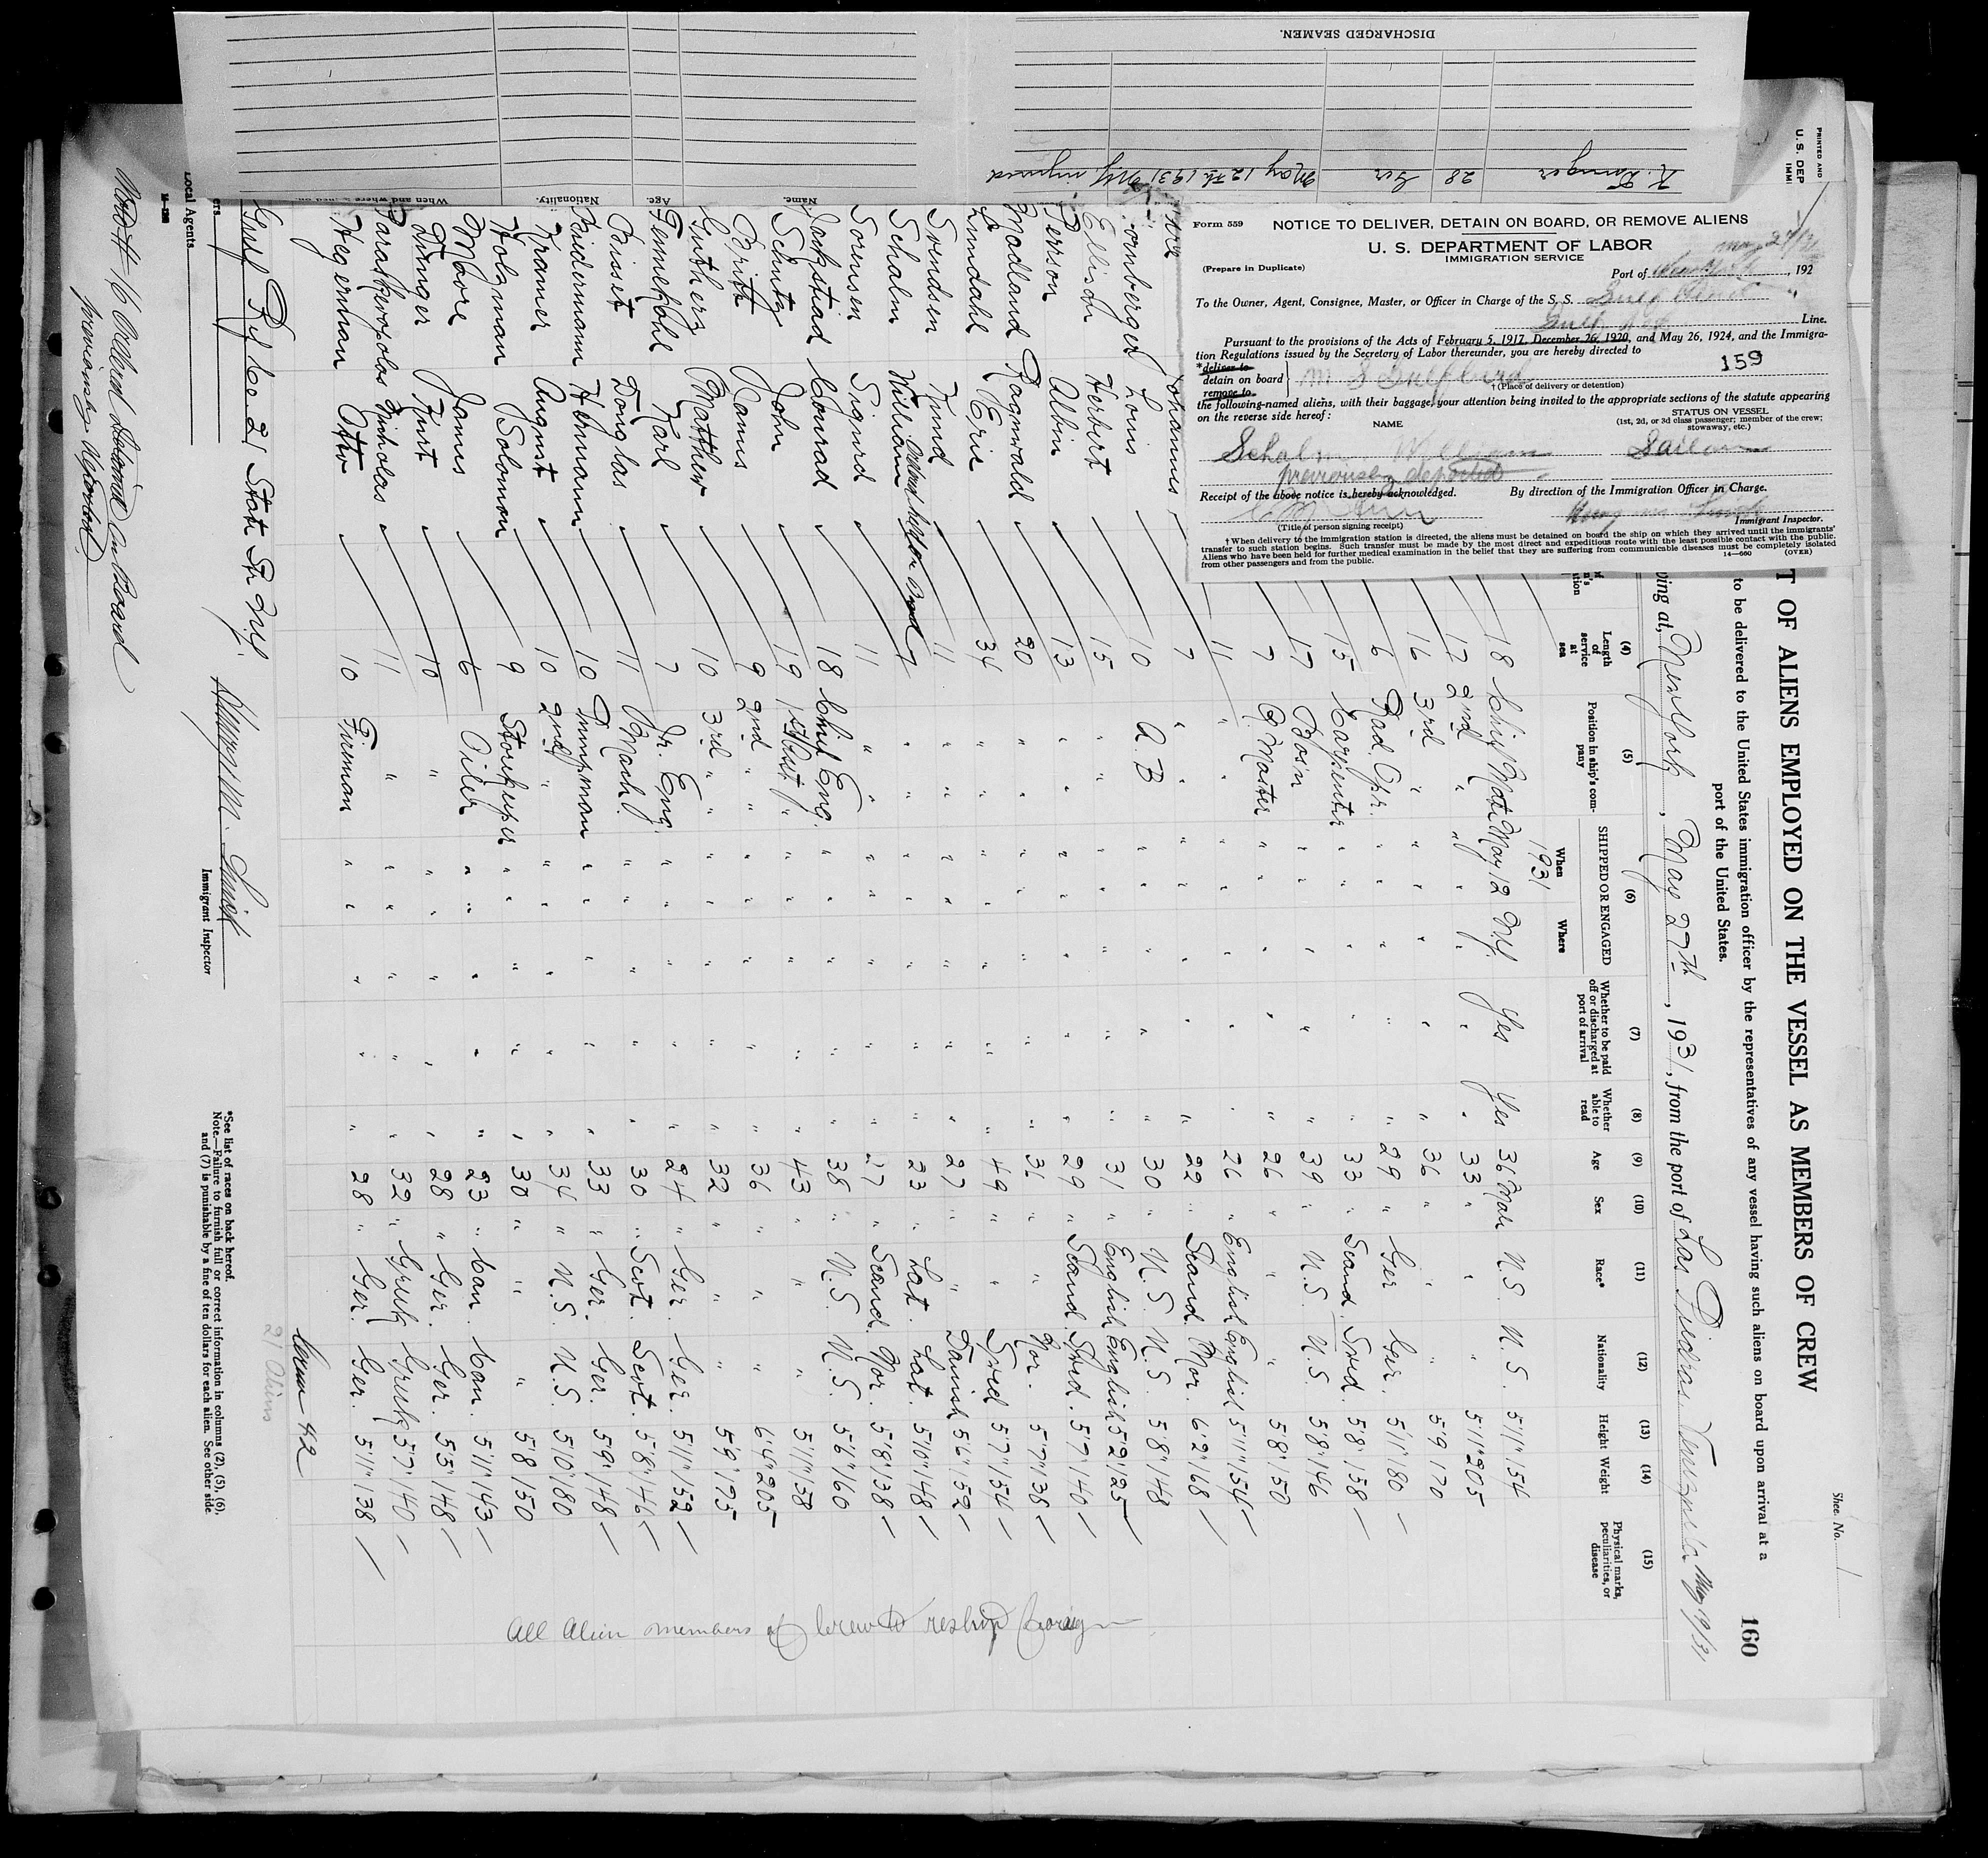 DISCHARGED SEAMEN.
Name.
Age.
Nationality.
When and where signed on.
K. Dunger 28 Ger May 12th 1931 N.Y. injured
Form 559
NOTICE TO DELIVER, DETAIN ON BOARD, OR REMOVE ALIENS
U. S. DEPARTMENT OF LABOR
IMMIGRATION SERVICE
(Prepare in Duplicate)
May 27/31
Port of New York, 192
To the Owner, Agent, Consignee, Master, or Officer in Charge of the S. S.
Gulf Ref Line.
Pursuant to the provisions of the Acts of February 5, 1917, December 26, 1920, and May 26, 1924, and the Immigra-
tion Regulations issued by the Secretary of Labor thereunder, you are hereby directed to
159
*deliver to
detain on board
remove to
M S Gulfbird
†(Place of delivery or detention)
the following-named aliens, with their baggage, your attention being invited to the appropriate sections of the statute appearing
on the reverse side hereof:
NAME
STATUS ON VESSEL
(1st, 2d, or 3d class passenger; member of the crew;
stowaway, etc.)
Schalm William Sailor
previously deported
Receipt of the above notice is hereby acknowledged.
By direction of the Immigration Officer in Charge.
(Title of person signing receipt)
Immigrant Inspector.
† When delivery to the immigration station is directed, the aliens must be detained on board the ship on which they arrived until the immigrants'
transfer to such station begins. Such transfer must be made by the most direct and expeditious route with the least possible contact with the public.
Aliens who have been held for further medical examination in the belief that they are suffering from communicable diseases must be completely isolated
from other passengers and from the public.
14—660 (OVER)
PRINTED AND
U. S. DEP
IMMI
Sheet No. 1
160
T OF ALIENS EMPLOYED ON THE VESSEL AS MEMBERS OF CREW
to be delivered to the United States immigration officer by the representatives of any vessel having such aliens on board upon arrival at a
port of the United States.
ving at, New York, May 27th, 1931, from the port of Las Piedras Venezuela May 19/31
(4) Length of service at sea
(5) Position in ship's company
(6) SHIPPED OR ENGAGED
When
Where
(7) Whether to be paid off or discharged at port of arrival
(8) Whether able to read
(9) Age
(10) Sex
(11) Race*
(12) Nationality
(13) Height
(14) Weight
(15) Physical marks, peculiarities, or disease
1931
18 Chief Mate May 12 N.Y. Yes Yes 36 Male U.S. U.S. 5'11" 154
17 2nd " " " " " " 33 " " " 5'11" 205
16 3rd " " " " " " 36 " " " 5'9 170
6 Rad. Opr. " " " " " 29 " Ger Ger. 5'11" 180
15 Carpenter " " " " " 33 " Scand. Swed. 5'8" 158
17 Bos'n " " " " " 39 " U.S. U.S. 5'8" 146
7 Q. Master " " " " " 26 " " " 5'8" 150
11 " " " " " " 26 " English English 5'11" 154
Johannes 7 " " " " " " 22 " Scand. Nor. 6'2" 168
ornberger Louis 10 A.B " " " " " 30 " U.S. U.S. 5'8" 148
Ellison Herbert 15 " " " " " " 31 " English English 5'2" 125
Person Albin 13 " " " " " " 29 " Scand. Swed. 5'7" 140
Madland Ragnwald 20 " " " " " " 31 " " Nor. 5'7" 138
Lundahl Eric 34 " " " " " " 49 " " Swed 5'7" 154
Svendsen Knud 11 " " " " " " 27 " " Danish 5'6" 152
Schalm William 7 " " " " " " 23 " Lat. Lat. 5'10" 148
Sorensen Sigurd 11 " " " " " " 27 " Scand. Nor. 5'8" 138
Jackstiad Conrad 18 Chief Eng. " " " " " 38 " U.S. U.S. 5'6" 160
Schutz John 19 1st Asst " " " " " 43 " " " 5'11" 158
Britt Hanus 9 2nd " " " " " " 36 " " " 6'4" 205
Guthery Matthew 10 3rd " " " " " " 32 " " " 5'9" 175
Temmekohl Karl 7 Jr. Eng. " " " " " 24 " Ger. Ger. 5'11" 152
Bisset Douglas 11 " " " " " 30 " Scot. Scot. 5'8" 146
Biedermann Hermann 10 Pumpman " " " " " 33 " Ger. Ger. 5'9" 148
Kramer August 10 2nd " " " " " " 34 " U.S. U.S. 5'10" 180
Holzman Solomon 9 Storekeeper " " " " " 30 " " " 5'8" 150
Moore James 6 Oiler " " " " " 23 " Can. Can. 5'11" 143
Dunger Kurt 10 " " " " " " 28 " Ger. Ger. 5'5" 148
Paraskevopolos Nicholas 11 " " " " " " 32 " Greek Greek 5'7" 140
Hegerman Otto 10 Fireman " " " " " 28 " Ger. Ger. 5'11" 138
All Alien members of crew to reship foreign
Crew 42
21 Aliens
Gulf Ref. Co. 21 State St. N.Y.
ers.
Local Agents
Immigrant Inspector
*See list of races on back hereof.
Note.—Failure to furnish full or correct information in columns (2), (5), (6),
and (7) is punishable by a fine of ten dollars for each alien. See other side.
Note # 16 Ordered Detained on Board
previously deported